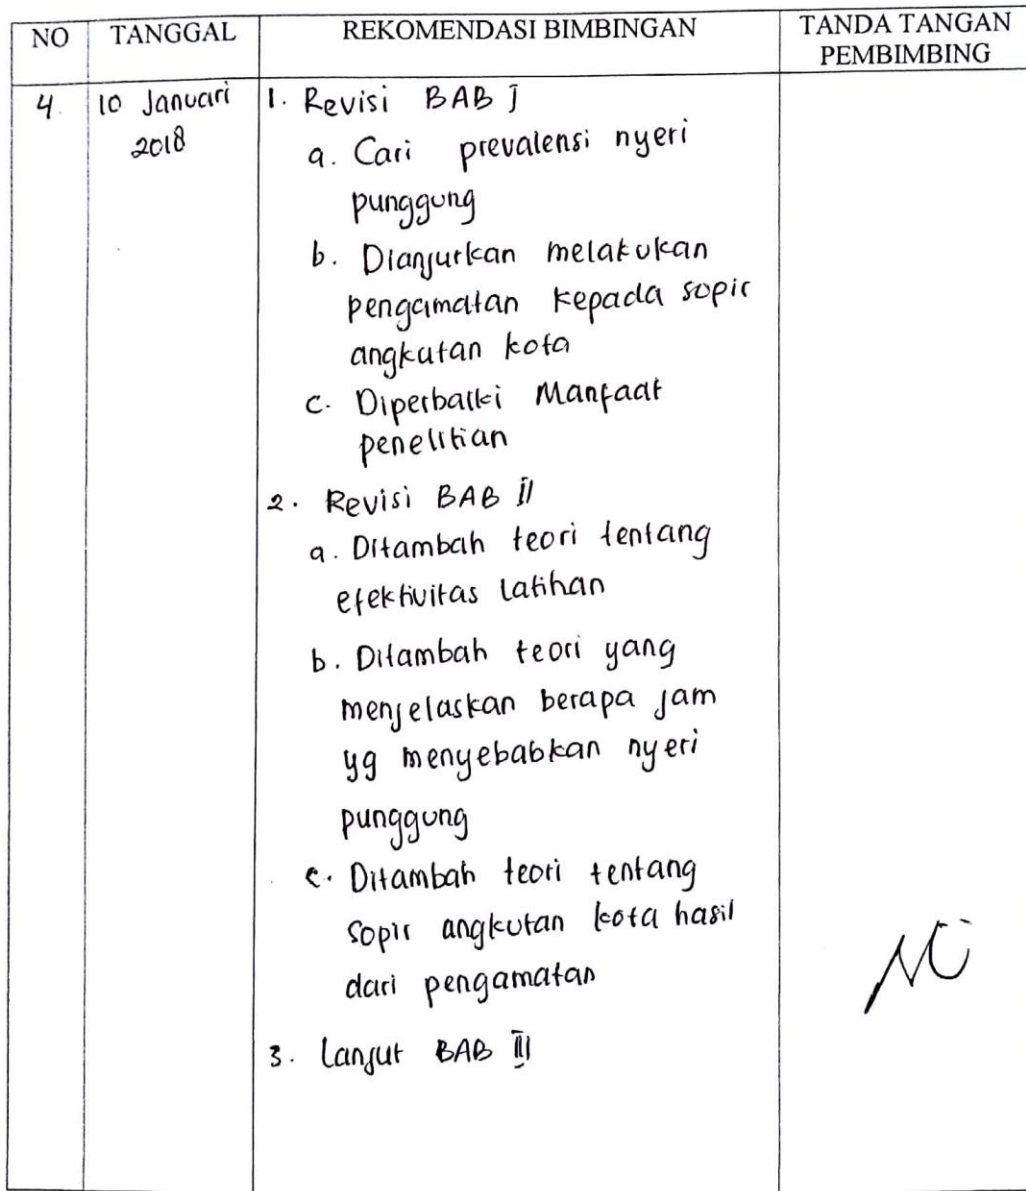 NO TANGGAL REKOMENDASI BIMBINGAN TANDA TANGAN PEMBIMBING
4. 10 Januari 2018
1. Revisi BAB I
a. Cari prevalensi nyeri
punggung
b. Dianjurkan melakukan
pengamatan kepada sopir
angkutan kota
c. Diperbaiki Manfaat
penelitian
2. Revisi BAB II
a. Ditambah teori tentang
efektivitas latihan
b. Ditambah teori yang
menjelaskan berapa jam
yg menyebabkan nyeri
punggung
c. Ditambah teori tentang
sopir angkutan kota hasil
dari pengamatan
3. Lanjut BAB III